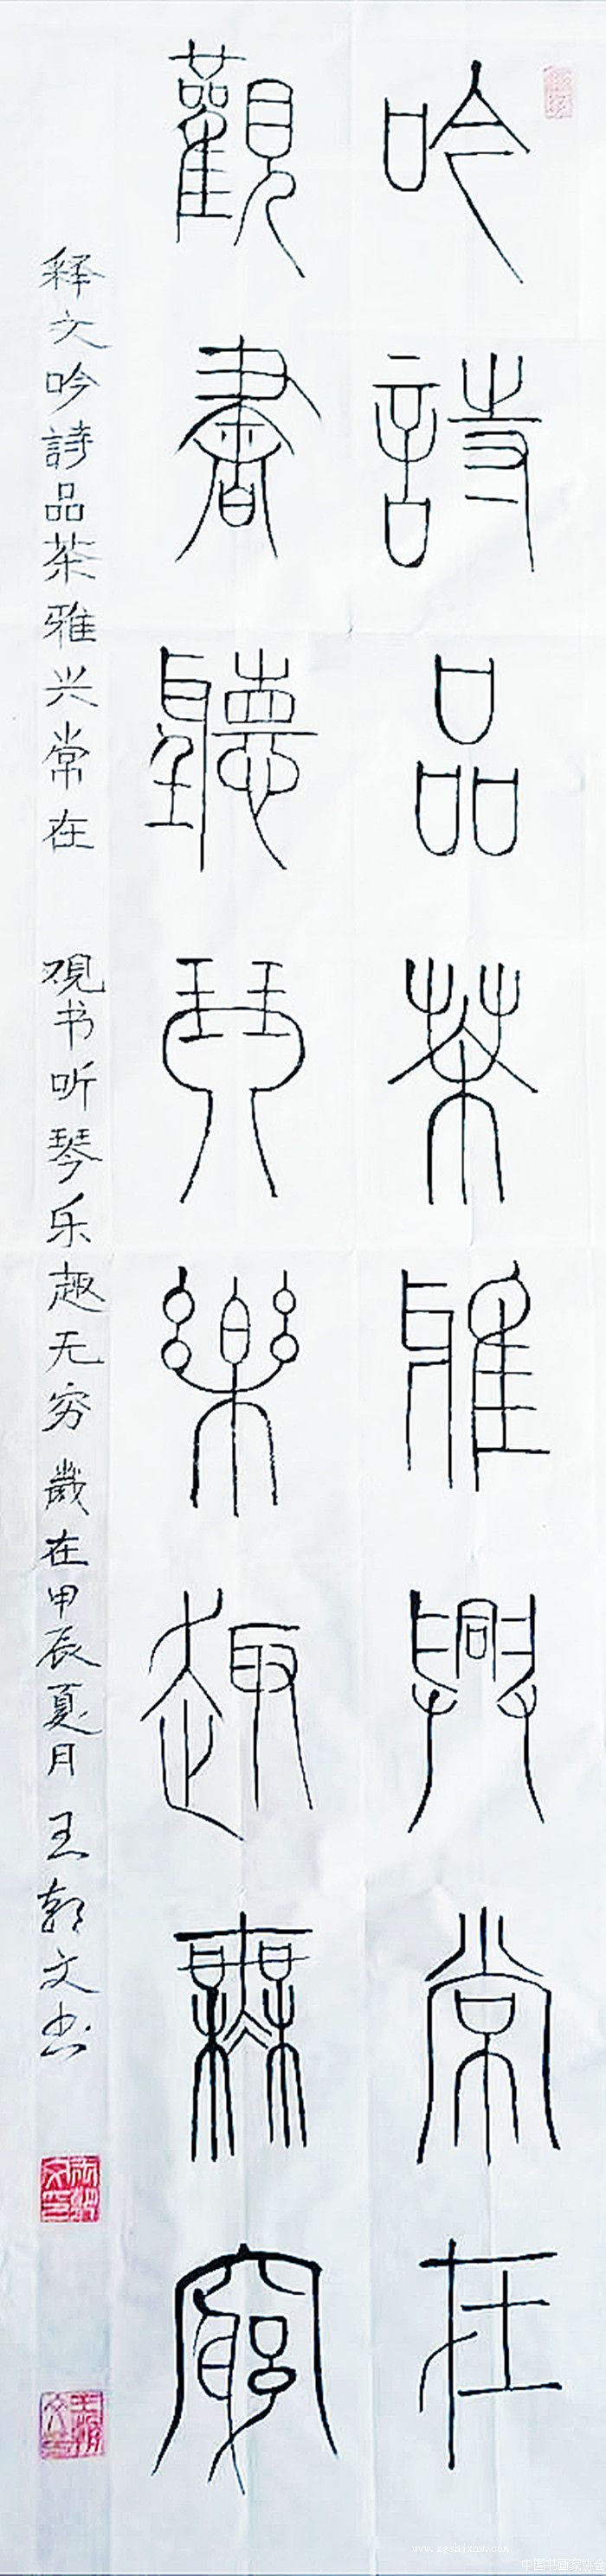 吟詩品茶雅興常在
觀書聽琴樂趣無窮
释文吟詩品茶雅兴常在 观书听琴乐趣无穷 歲在甲辰夏月 王 文书
www.zgshjxhv.com
中国书画家协会